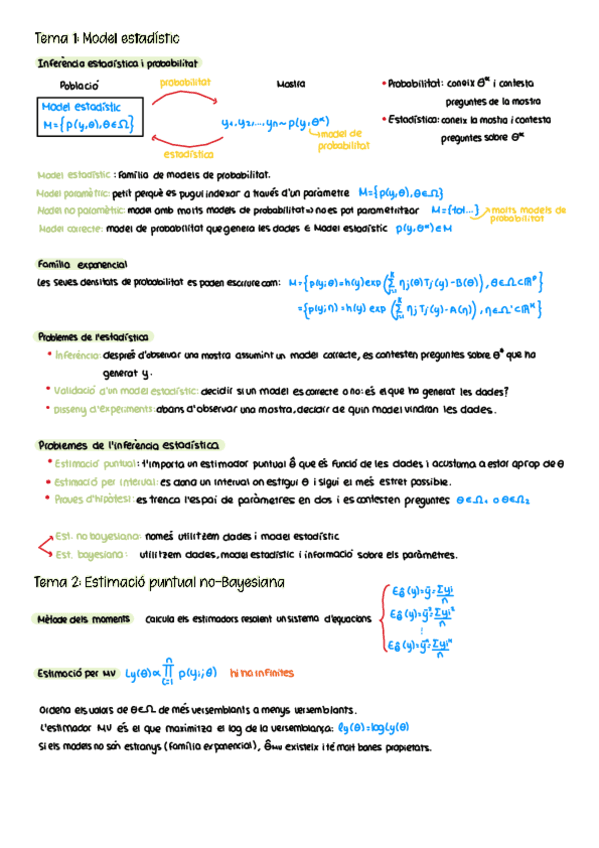 Tema 1: Model estadístic
Inferència estadística i probabilitat
Població probabilitat Mostra
Model estadístic
M={p(y,θ),θ∈Ω}
y₁,y₂,...,yn~p(y,θ*)
model de probabilitat
estadística
• Probabilitat: coneix θ* i contesta
preguntes de la mostra
• Estadística: coneix la mostra i contesta
preguntes sobre θ*
Model estadístic: família de models de probabilitat.
Model paramètric: petit perquè es pugui indexar a través d'un paràmetre M={p(y,θ),θ∈Ω}
Model no paramètric: model amb molts models de probabilitat => no es pot parametritzar M={tot...} molts models de probabilitat
Model correcte: model de probabilitat que genera les dades ∈ Model estadístic p(y,θ*)∈M
Família exponencial
Les seves densitats de probabilitat es poden escriure com: M={p(y;θ)=h(y)exp(Σ ηj(θ)Tj(y)-B(θ)),θ∈Ω⊂ℝᵖ}
={p(y;η)=h(y)exp(Σ ηjTj(y)-A(η)),η∈Ω'⊂ℝᵏ}
Problemes de l'estadística
• Inferència: després d'observar una mostra assumint un model correcte, es contesten preguntes sobre θ* que ha
generat y.
• Validació d'un model estadístic: decidir si un model es correcte o no: és el que ha generat les dades?
• Disseny d'experiments: abans d'observar una mostra, decidir de quin model vindran les dades.
Problemes de l'inferència estadística
• Estimació puntual: t'importa un estimador puntual θ̂ que és funció de les dades i acustuma a estar aprop de θ
• Estimació per interval: es dona un interval on estigui θ i sigui el més estret possible.
• Proves d'hipòtesi: es trenca l'espai de paràmetres en dos i es contesten preguntes θ∈Ω₁ o θ∈Ω₂
Est. no bayesiana: només utilitzem dades i model estadístic
Est. bayesiana: utilitzem dades, model estadístic i informació sobre els paràmetres.
Tema 2: Estimació puntual no-Bayesiana
Mètode dels moments calcula els estimadors resolent un sistema d'equacions
Eθ̂(y)=ȳ=Σyi/n
Eθ̂(y)=ȳ²=Σyi²/n
⋮
Eθ̂(y)=ȳᵏ=Σyiᵏ/n
Estimació per MV Ly(θ)∝∏ p(yi;θ) hi ha infinites
Ordena els valors de θ∈Ω de més versemblants a menys versemblants.
L'estimador MV és el que maximitza el log de la versemblança: ℓy(θ)=logLy(θ)
Si els models no són estranys (família exponencial), θ̂MV existeix i té molt bones propietats.